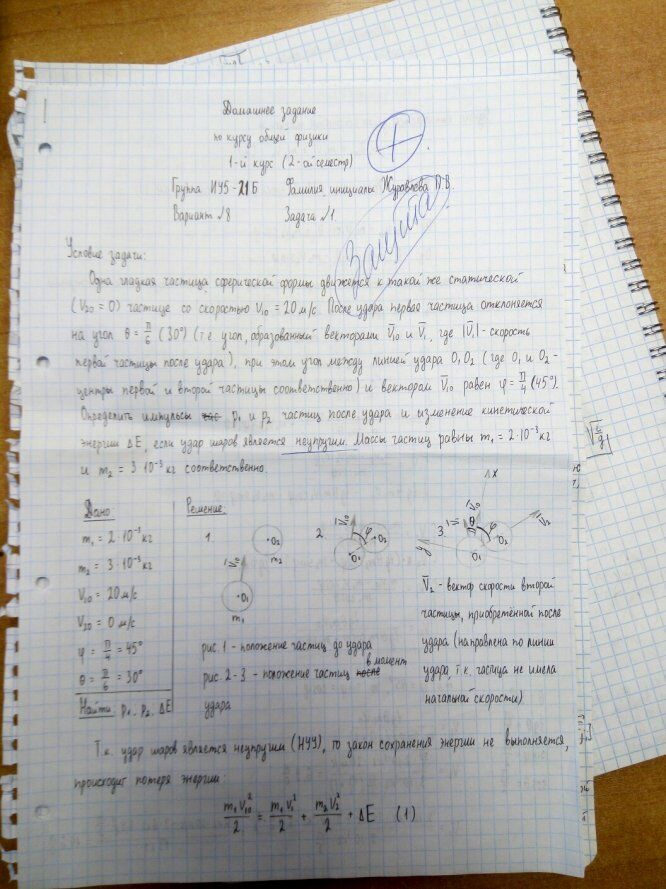 Домашнее задание
по курсу общей физики
1-й курс (2-ой семестр)
Группа ИУ5-21Б Фамилия инициалы Журавлева П.В.
Вариант №8 Задача №1
Защита
Условие задачи:
Одна гладкая частица сферической формы движется к такой же статической
(V20 = 0) частице со скоростью V10 = 20 м/с. После удара первая частица отклоняется
на угол θ = π/6 (30°) (т.е угол, образованный векторами V̄10 и V̄1, где |V̄1| - скорость
первой частицы после удара), при этом угол между линией удара O1O2 (где O1 и O2 -
центры первой и второй частицы соответственно) и вектором V̄10 равен φ = π/4 (45°).
Определить импульсы p1 и p2 частиц после удара и изменение кинетической
энергии ΔE, если удар шаров является неупругим. Массы частиц равны m1 = 2·10⁻³ кг
и m2 = 3·10⁻³ кг соответственно.
Дано:
m1 = 2·10⁻³ кг
m2 = 3·10⁻³ кг
V10 = 20 м/с
V20 = 0 м/с
φ = π/4 = 45°
θ = π/6 = 30°
Найти: p1, p2, ΔE
Решение:
1.
V̄10
O2
m2
O1
m1
2.
V̄10
φ
O2
O1
3.
x
V̄10
V̄1
θ
φ
V̄2
y
O2
O1
рис. 1 - положение частиц до удара
рис. 2-3 - положение частиц после в момент
удара
V̄2 - вектор скорости второй
частицы, приобретённой после
удара (направлена по линии
удара, т.к. частица не имела
начальной скорости)
Т.к. удар шаров является неупругим (НУУ), то закон сохранения энергии не выполняется,
происходит потеря энергии:
m1V10²/2 = m1V1²/2 + m2V2²/2 + ΔE (1)